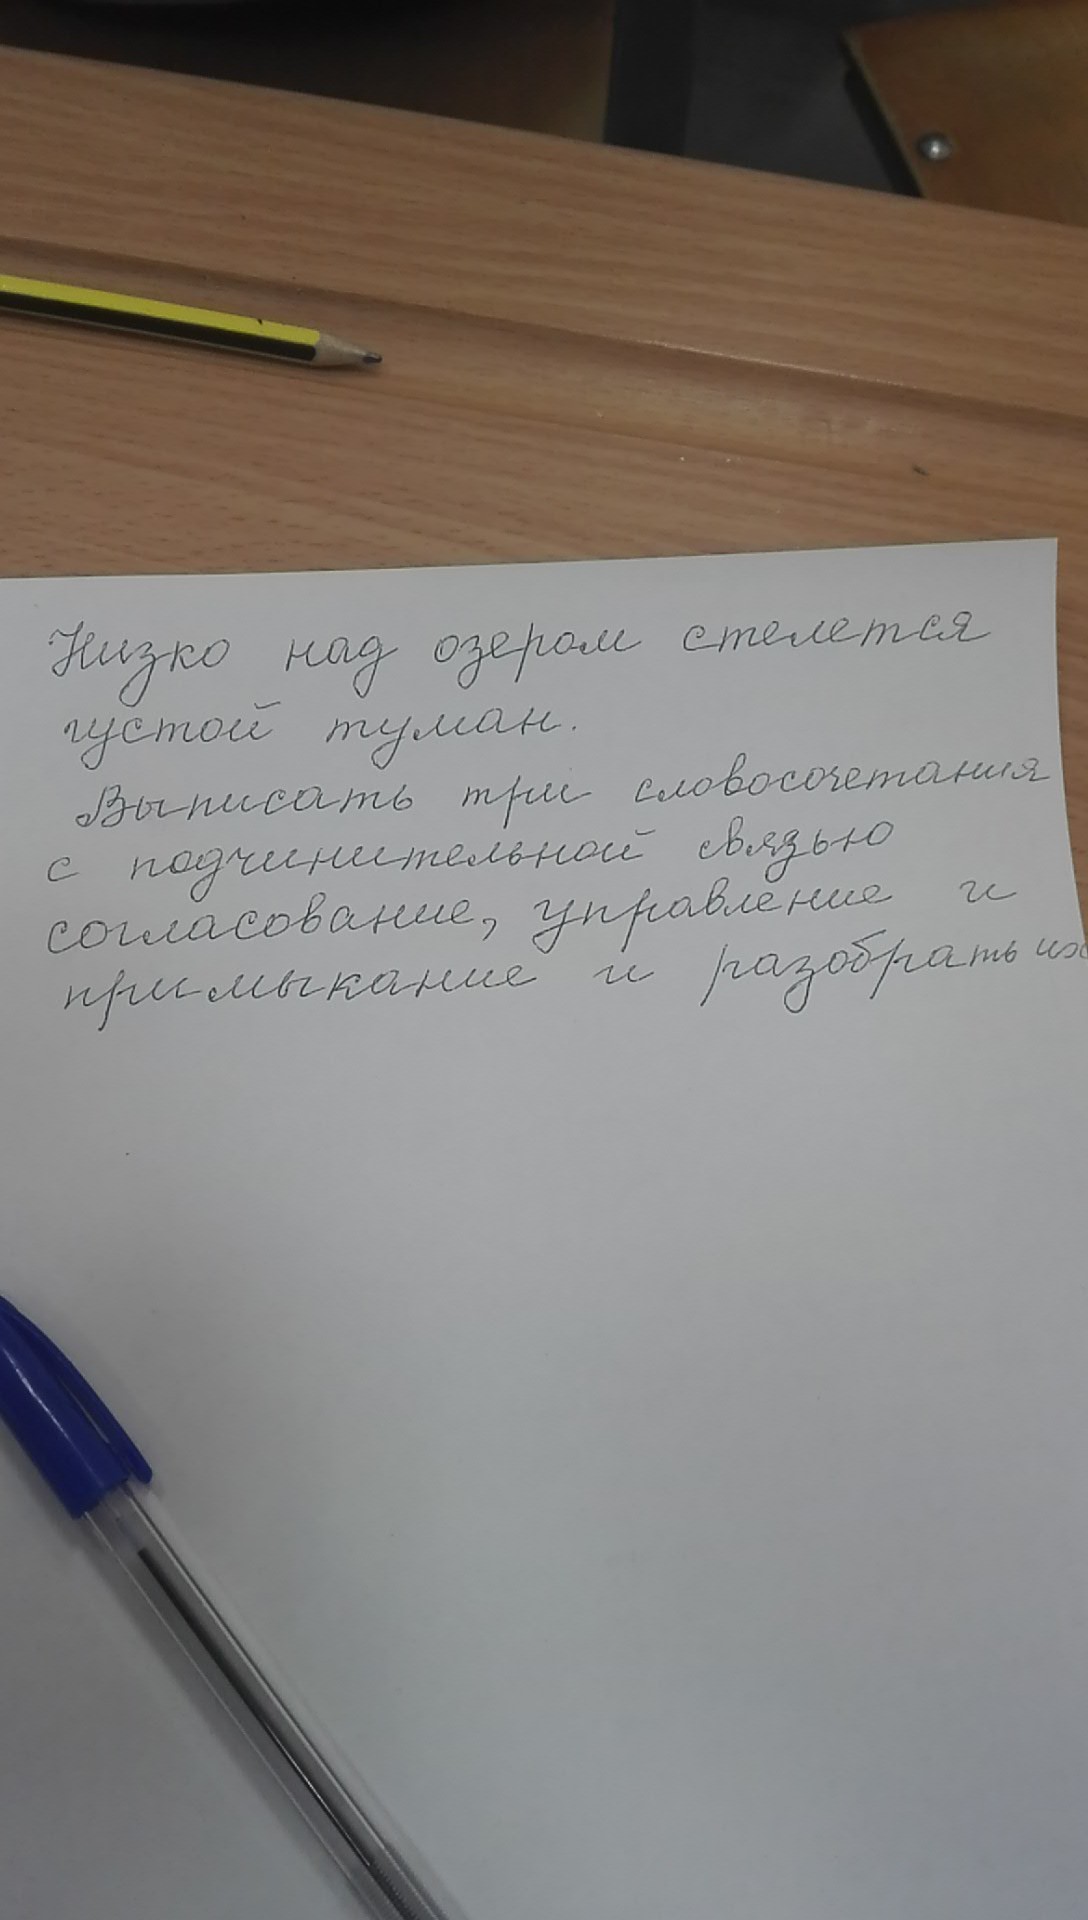 Низко над озером стелется
густой туман.
Выписать три словосочетания
с подчинительной связью
согласование, управление и
примыкание и разобрать их